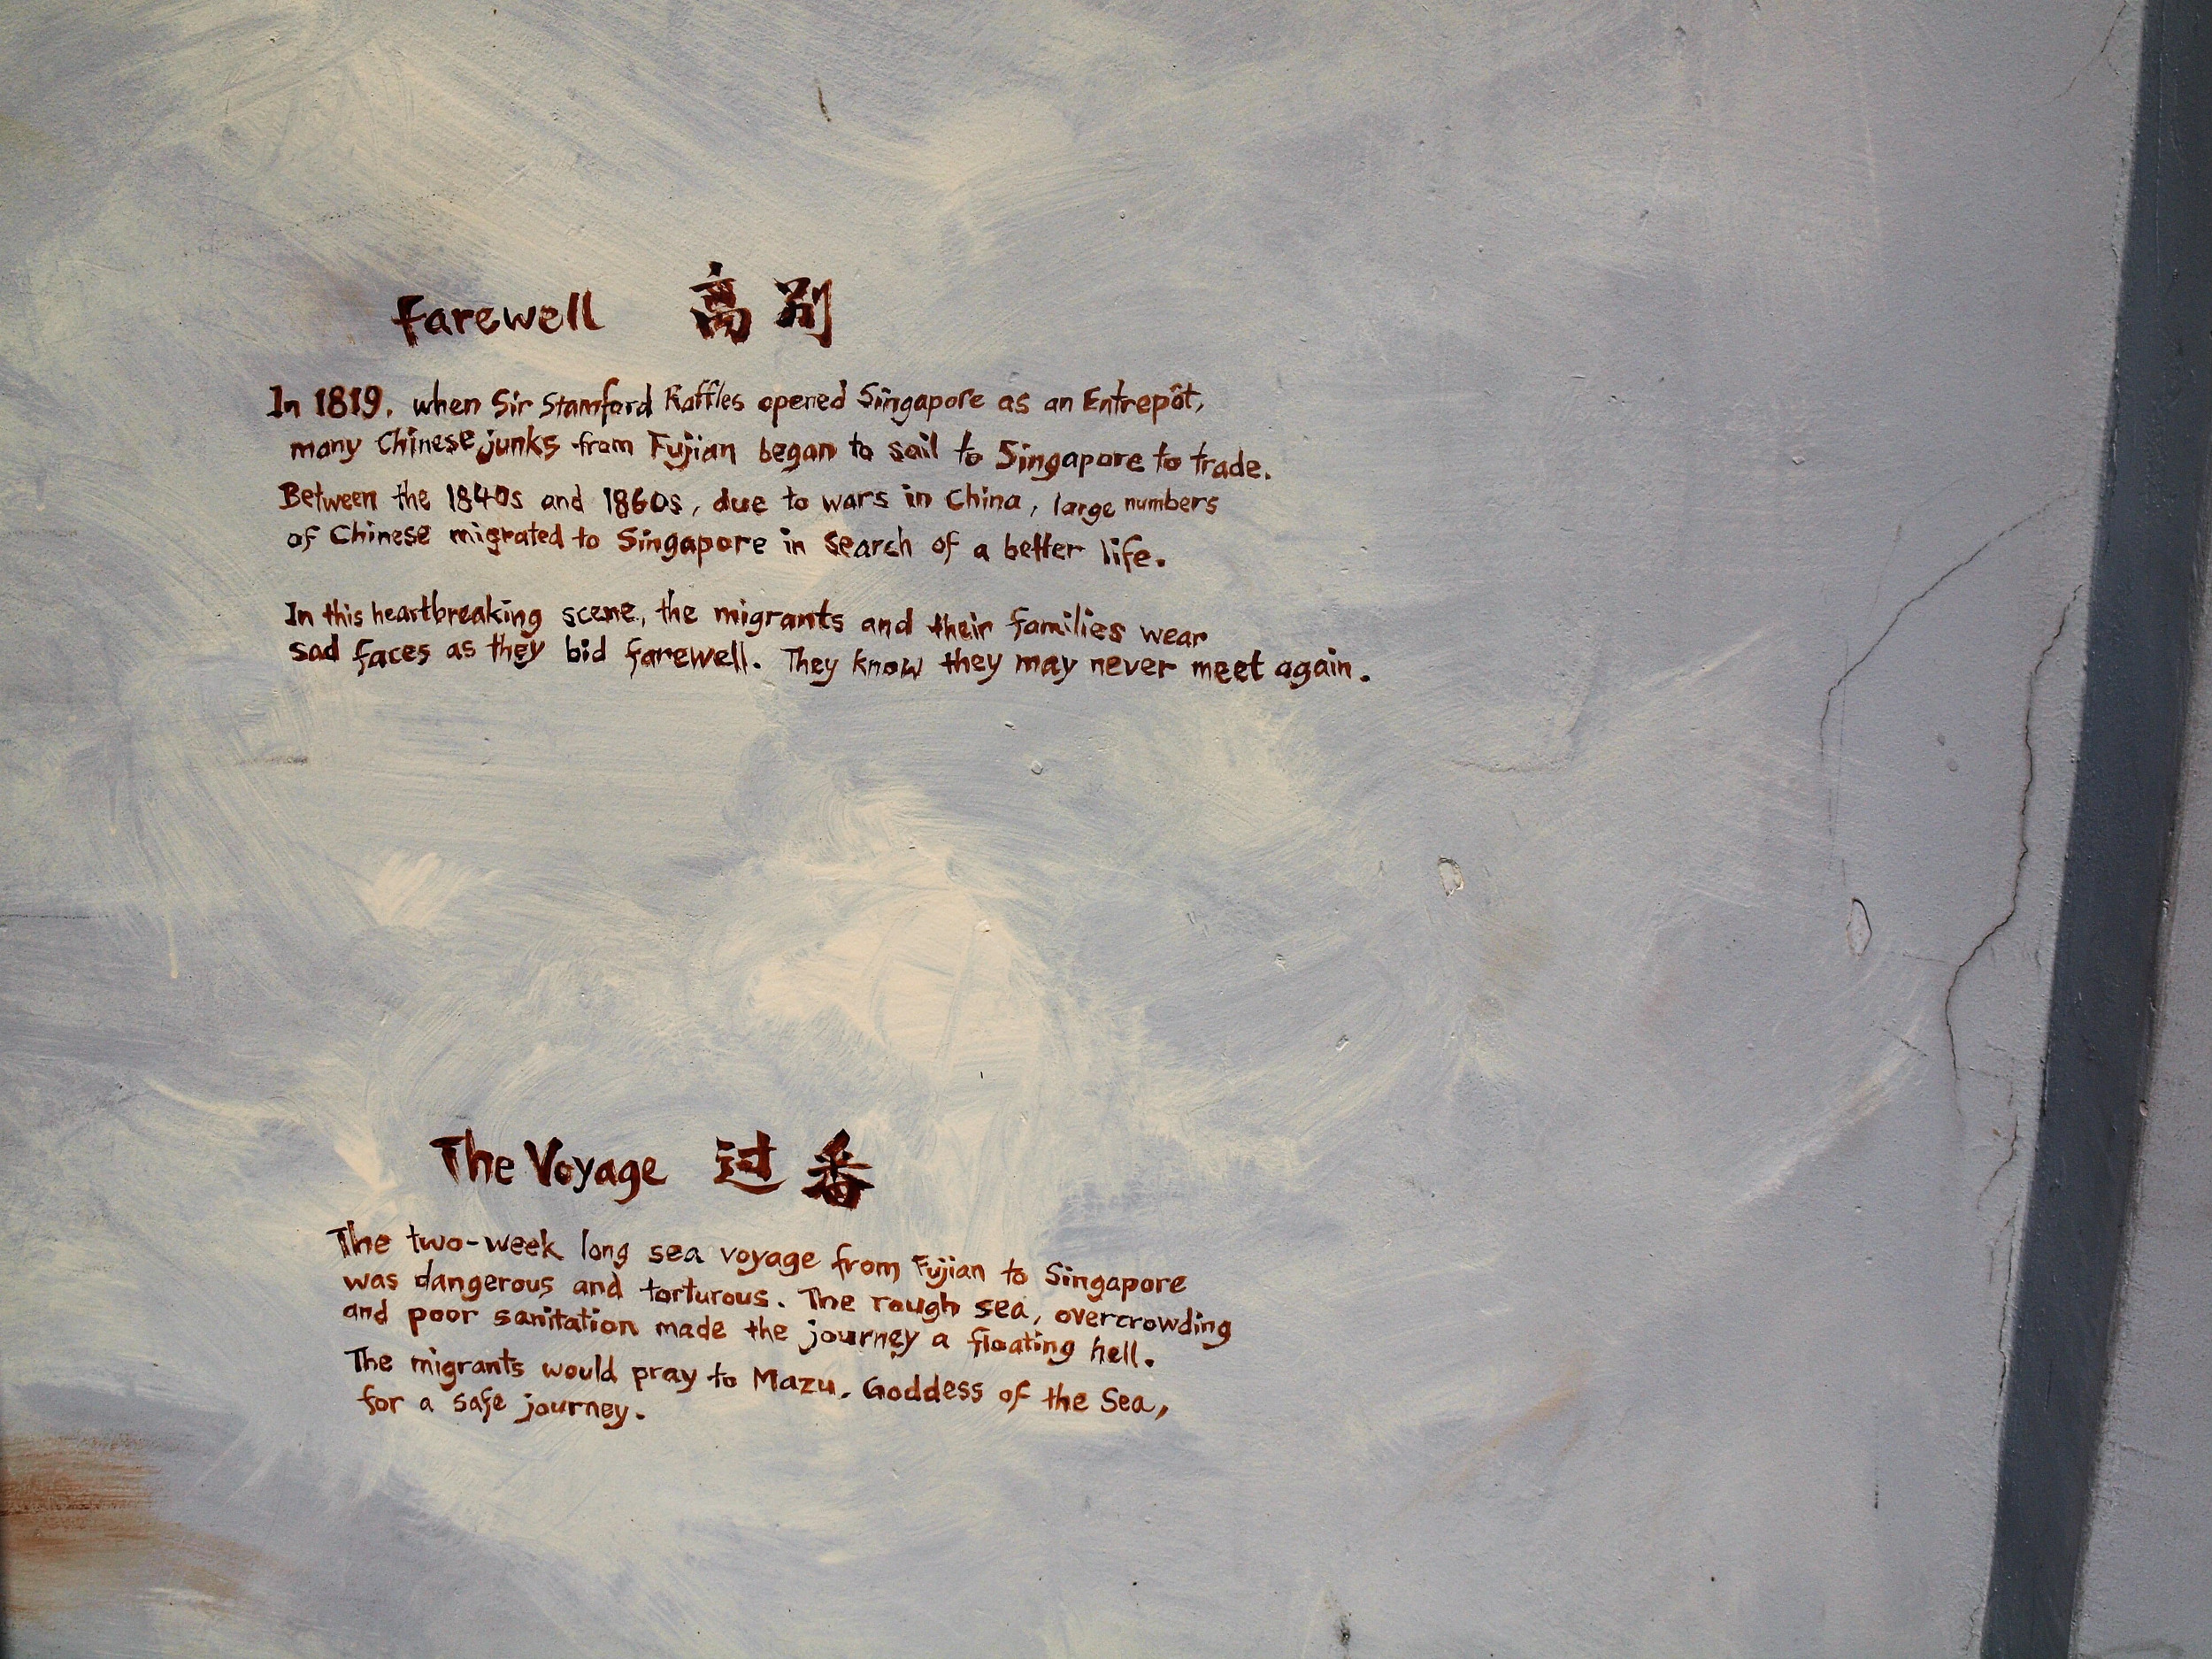 Farewell 离别
In 1819, when Sir Stamford Raffles opened Singapore as an Entrepôt,
many Chinese junks from Fujian began to sail to Singapore to trade.
Between the 1840s and 1860s, due to wars in China, large numbers
of Chinese migrated to Singapore in search of a better life.
In this heartbreaking scene, the migrants and their families wear
sad faces as they bid farewell. They know they may never meet again.
The Voyage 过番
The two-week long sea voyage from Fujian to Singapore
was dangerous and torturous. The rough sea, overcrowding
and poor sanitation made the journey a floating hell.
The migrants would pray to Mazu, Goddess of the Sea,
for a safe journey.